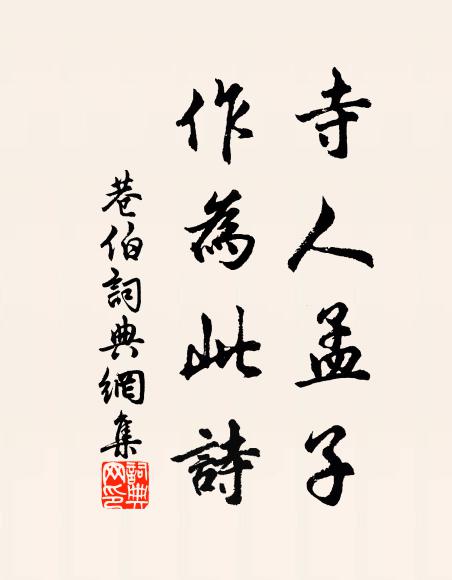 寺人孟子
作為此詩
巷伯詞典網集
詞典網印